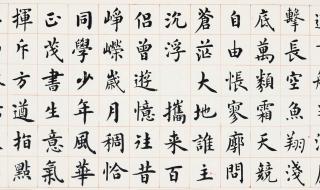 擊長空魚翔淺
底萬類霜天競
自由悵寥廓問
蒼茫大地誰主
沉浮攜来百
侶曾遊憶往昔
崢嶸歲月稠恰
同學少年風華
正茂書生意氣
揮斥方遒指點